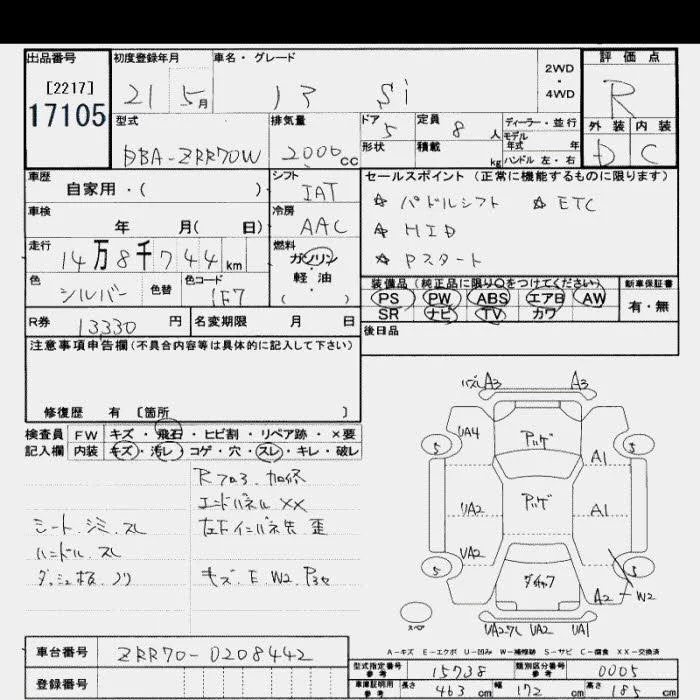 出品番号
[2217]
17105
初度登録年月
21 5月
車名・グレード
Si
2WD
4WD
評価点
R
外装 内装
D C
型式
DBA-ZRR70W
排気量
2000cc
ドア
5
形状
定員
8人
積載
kg
ディーラー・並行
モデル年式 年
ハンドル 左・右
車歴
自家用・( )
シフト
IAT
セールスポイント (正常に機能するものに限ります)
☆ パドルシフト ☆ ETC
☆ HID
☆ Pスタート
車検
年 月( 日)
冷房
AAC
走行
14万8千744km
燃料
ガソリン
軽油
( )
色
シルバー
色替
色コード
1F7
装備品 (純正品に限り○をつけてください)
PS PW ABS エアB AW
SR ナビ TV カワ
新車保証書
有・無
R券
13330円
名変期限 月 日
後日品
注意事項申告欄(不具合内容等は具体的に記入して下さい)
修復歴 有 [箇所 ]
検査員記入欄
FW キズ・飛石・ヒビ割・リペア跡・×要
内装 キズ・汚レ・コゲ・穴・スレ・キレ・破レ
エンドパネル XX
シート.ジミ.スレ
ハンドル.スレ
キズ.E.W2
A3 A3
UA4
5 5
A1
UA2
A1
UA2
5 5
A2 W2
UA2 A1
A-キズ E-エクボ U-凹み W-補修跡 S-サビ C-腐食 XX-交換済
車台番号
ZRR70-0208442
登録番号
型式指定番号
参考
15738
類別区分番号
参考
0005
車庫証明用
参考
長さ 463cm
幅 172cm
高さ 185cm